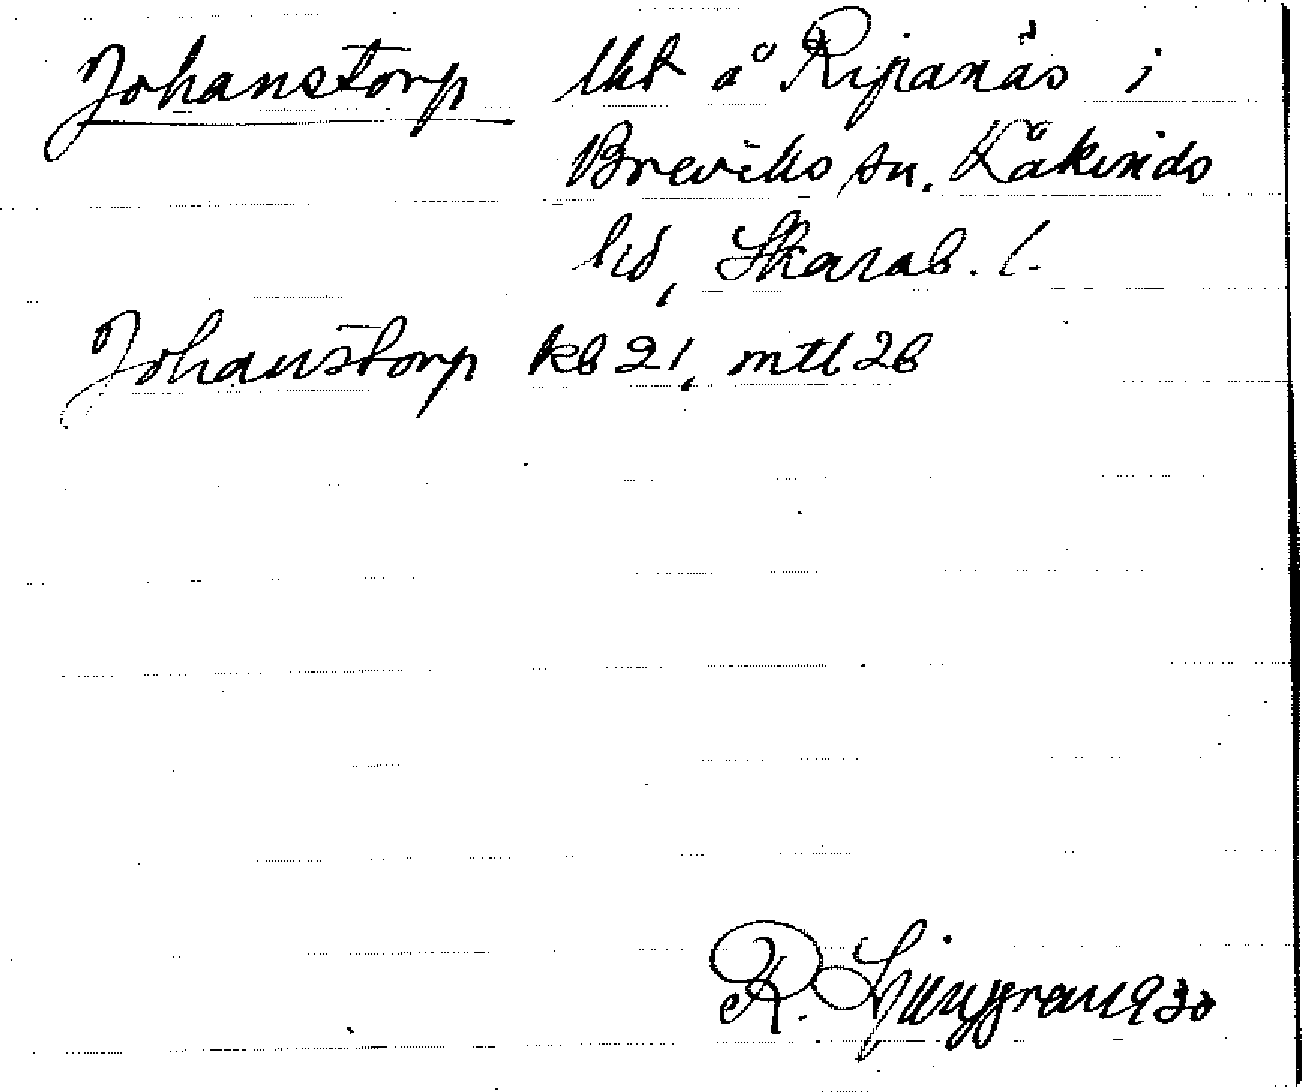 Johanstorp lht å Ripanäs i
Breviks sn. Kåkinds
hd, Skarab. l.
Johanstorp kb 21, mtl 2b
R. Ljunggren 1930